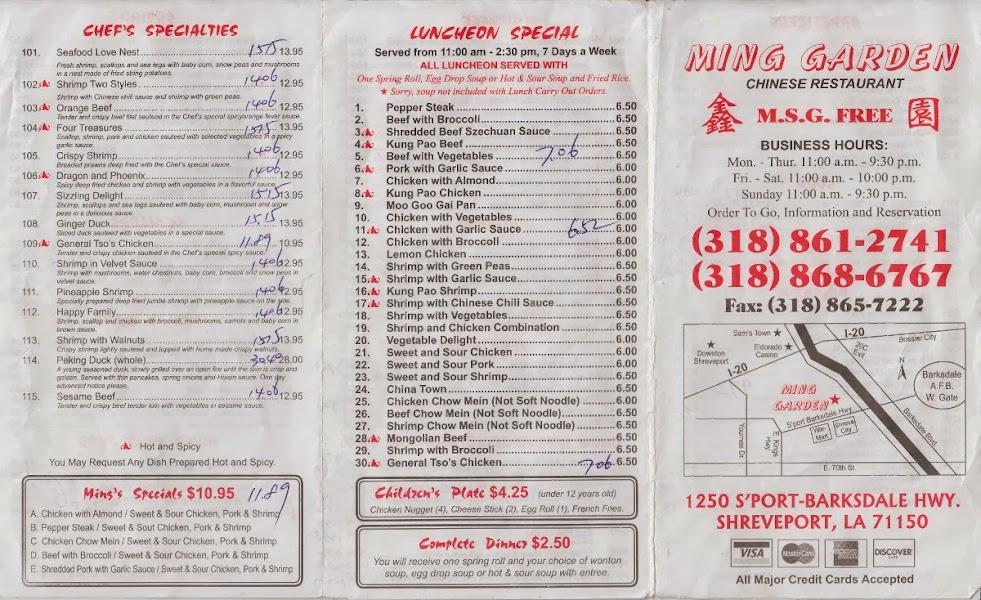 CHEF'S SPECIALTIES
101. Seafood Love Nest 15.15 13.95
Fresh shrimp, scallops and sea legs with baby corn, snow peas and mushrooms
in a nest made of fried string potatoes.
102. Shrimp Two Styles 14.06 12.95
Shrimp with Chinese chili sauce and shrimp with green peas.
103. Orange Beef 14.06 12.95
Tender and crispy beef filet sauteed in the Chef's special spicy orange flavor sauce.
104. Four Treasures 15.15 13.95
Scallop, shrimp, pork and chicken sauteed with selected vegetables in a spicy
garlic sauce.
105. Crispy Shrimp 14.06 12.95
Breaded prawns deep fried with the Chef's special sauce.
106. Dragon and Phoenix 14.06 12.95
Spicy deep fried chicken and shrimp with vegetables in a flavorful sauce.
107. Sizzling Delight 15.15 13.95
Shrimp, scallops and sea legs sauteed with baby corn, mushroom and snow
peas in a delicious sauce.
108. Ginger Duck 15.15 13.95
Sliced duck sauteed with vegetables in a special sauce.
109. General Tso's Chicken 11.89 10.95
Tender and crispy chicken sauteed in the Chef's special spicy sauce.
110. Shrimp in Velvet Sauce 14.06 12.95
Shrimp with mushrooms, water chestnuts, baby corn, broccoli and snow peas in
velvet sauce.
111. Pineapple Shrimp 14.06 12.95
Specially prepared deep fried jumbo shrimp with pineapple sauce on the side.
112. Happy Family 14.06 12.95
Shrimp, scallop and chicken with broccoli, mushrooms, carrots and baby corn in
brown sauce.
113. Shrimp with Walnuts 15.15 13.95
Crispy shrimp lightly sauteed and topped with home made crispy walnuts.
114. Peking Duck (whole) 30.40 28.00
A young seasoned duck, slowly grilled over an open fire until the skin is crisp and
golden. Served with thin pancakes, spring onions and Hoisin sauce. One day
advanced notice please.
115. Sesame Beef 14.06 12.95
Tender and crispy beef tender loin with vegetables in sesame sauce.
Hot and Spicy
You May Request Any Dish Prepared Hot and Spicy.
Ming's Specials $10.95 11.89
A. Chicken with Almond / Sweet & Sour Chicken, Pork & Shrimp
B. Pepper Steak / Sweet & Sout Chicken, Pork & Shrimp
C. Chicken Chow Mein / Sweet & Sour Chicken, Pork & Shrimp
D. Beef with Broccoli / Sweet & Sour Chicken, Pork & Shrimp
E. Shredded Pork with Garlic Sauce / Sweet & Sour Chicken, Pork & Shrimp
LUNCHEON SPECIAL
Served from 11:00 am - 2:30 pm, 7 Days a Week
ALL LUNCHEON SERVED WITH
One Spring Roll, Egg Drop Soup or Hot & Sour Soup and Fried Rice.
★ Sorry, soup not included with Lunch Carry Out Orders.
1. Pepper Steak 6.50
2. Beef with Broccoli 6.50
3. Shredded Beef Szechuan Sauce 6.50
4. Kung Pao Beef 6.50
5. Beef with Vegetables 7.06 6.50
6. Pork with Garlic Sauce 6.00
7. Chicken with Almond 6.00
8. Kung Pao Chicken 6.00
9. Moo Goo Gai Pan 6.00
10. Chicken with Vegetables 6.00
11. Chicken with Garlic Sauce 6.52 6.00
12. Chicken with Broccoli 6.00
13. Lemon Chicken 6.00
14. Shrimp with Green Peas 6.50
15. Shrimp with Garlic Sauce 6.50
16. Kung Pao Shrimp 6.50
17. Shrimp with Chinese Chili Sauce 6.50
18. Shrimp with Vegetables 6.50
19. Shrimp and Chicken Combination 6.50
20. Vegetable Delight 6.00
21. Sweet and Sour Chicken 6.00
22. Sweet and Sour Pork 6.00
23. Sweet and Sour Shrimp 6.50
24. China Town 6.50
25. Chicken Chow Mein (Not Soft Noodle) 6.00
26. Beef Chow Mein (Not Soft Noodle) 6.50
27. Shrimp Chow Mein (Not Soft Noodle) 6.50
28. Mongolian Beef 6.50
29. Shrimp with Broccoli 6.50
30. General Tso's Chicken 7.06 6.50
Children's Plate $4.25 (under 12 years old)
Chicken Nugget (4), Cheese Stick (2), Egg Roll (1), French Fries.
Complete Dinner $2.50
You will receive one spring roll and your choice of wonton
soup, egg drop soup or hot & sour soup with entree.
MING GARDEN
CHINESE RESTAURANT
鑫 M.S.G. FREE 園
BUSINESS HOURS:
Mon. - Thur. 11:00 a.m. - 9:30 p.m.
Fri. - Sat. 11:00 a.m. - 10:00 p.m.
Sunday 11:00 a.m. - 9:30 p.m.
Order To Go, Information and Reservation
(318) 861-2741
(318) 868-6767
Fax: (318) 865-7222
Sam's Town ★
I-20
Bossier City
20C
Exit
★
Downton
Shreveport
Eldorado ★
Casino
N
I-20
Barksdale
A.F.B.
W. Gate
MING
GARDEN ★
S'port Barksdale Hwy.
Wal-
Mart
Youree Dr.
E. Kings
Hwy
Barksdale Blvd.
E. 70th St.
1250 S'PORT-BARKSDALE HWY.
SHREVEPORT, LA 71150
VISA MasterCard AMERICAN EXPRESS DISCOVER
All Major Credit Cards Accepted